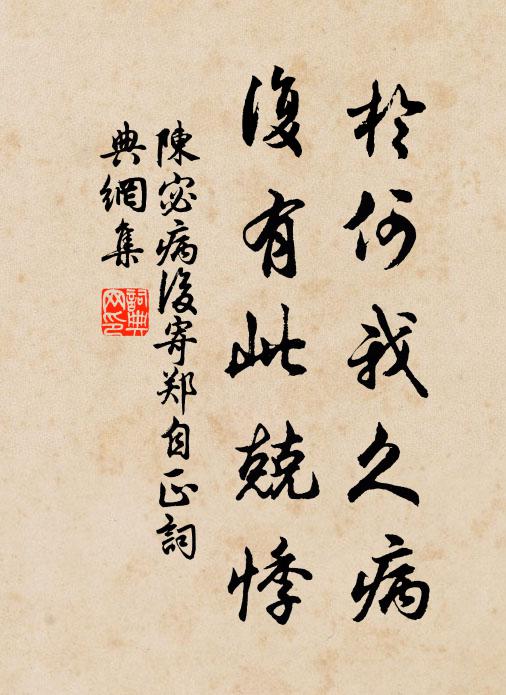 於何我久病
復有此兢悸
陳宓病後寄郑自正詞
典網集
詞典
网印